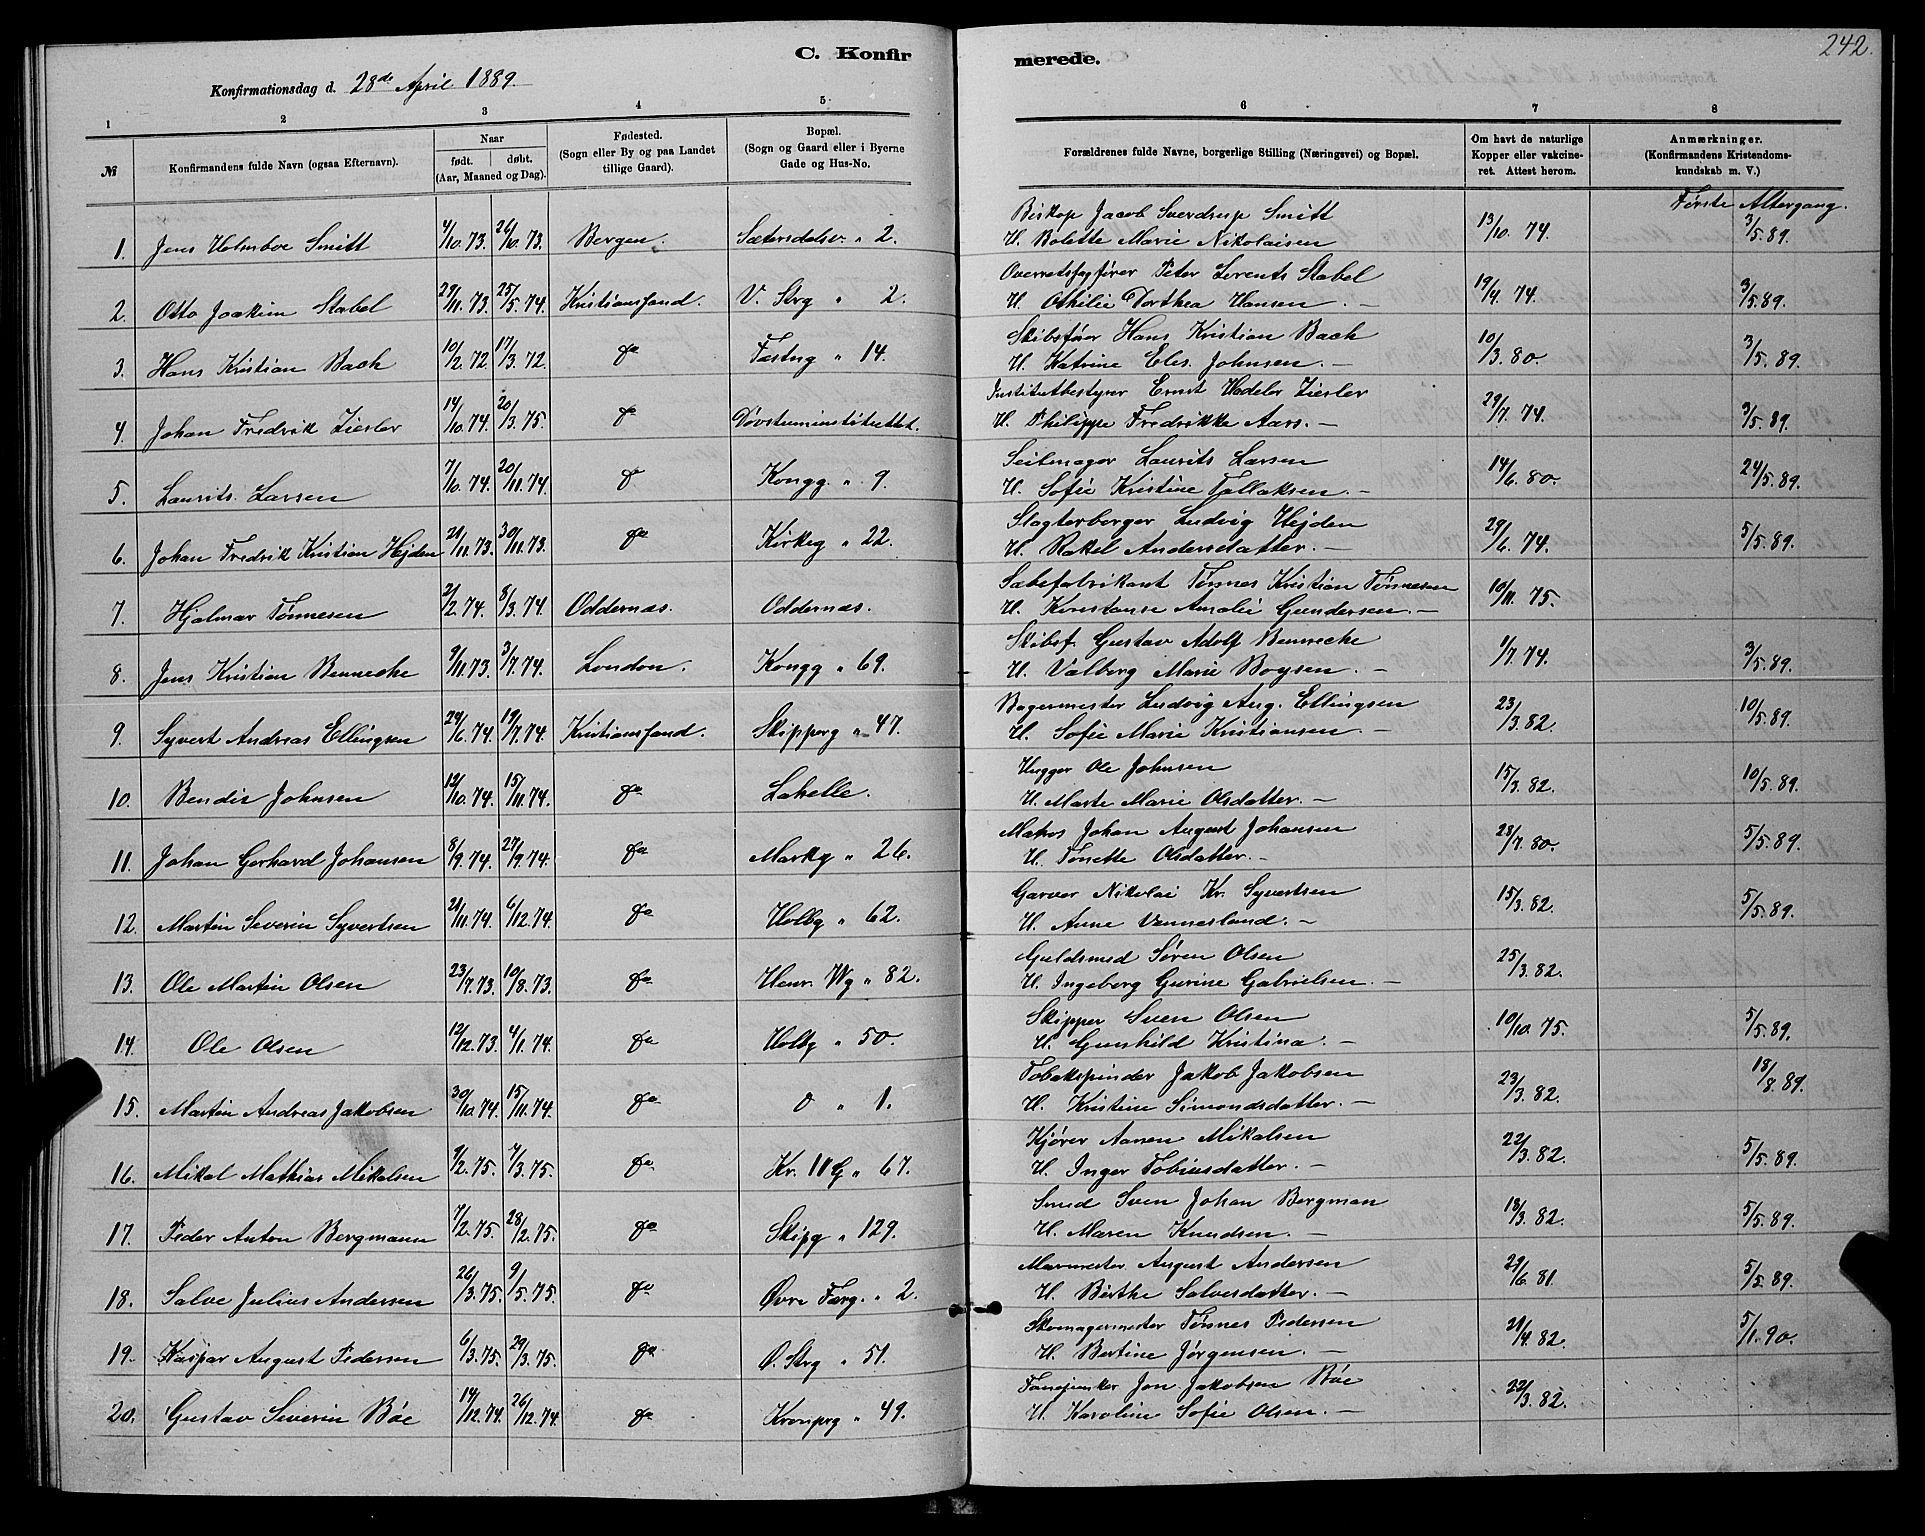 242.
C. Konfirmerede.
Konfirmationsdag d. 28de April 1889.
1 2 3 4 5 6 7 8
№ Konfirmandens fulde Navn (ogsaa Efternavn). Naar født. døbt. (Aar, Maaned og Dag). Fødested. (Sogn eller By og paa Landet tillige Gaard). Bopæl. (Sogn og Gaard eller i Byerne Gade og Hus-No. Forældrenes fulde Navne, borgerlige Stilling (Næringsvei) og Bopæl. Om havt de naturlige Kopper eller vakcineret. Attest herom. Anmærkninger. (Konfirmandens Kristendomskundskab m. V.)
Første Altergang.
Biskop Jacob Sverdrup Smitt
1. Jens Holmboe Smitt 4/10.73. 26/10.73. Bergen. Sætersdalsv. " 2. H. Bolette Marie Nikolaisen 13/10.74. 3/5.89.
Overretssagfører Peter Lorents Stabel
2. Otto Joakim Stabel 29/11.73. 25/5.74. Kristianssand. V. Strg " 2. H. Othilie Dorthea Hansen. — 19/4.74. 3/5.89.
Skibsfører Hans Kristian Bach
3. Hans Kristian Bach 10/2.72. 17/3.72. do Fæstng " 14. H. Katrine Elis. Johnsen. — 10/3.80. 3/5.89.
Institutbestyrer Ernst Hedeler Ziesler
4. Johan Fredrik Ziesler 14/10.74. 20/3.75. do Døvstuminstituttet. H. Philippe Fredrikke Aars. — 29/7.74. 3/5.89.
Seilmager Laurits Larsen
5. Laurits Larsen 7/10.74. 20/11.74. do Kongg. " 9. H. Sofie Kristine Tallaksen. — 14/6.80. 24/5.89.
Slagterborger Ludvig Hejden
6. Johan Fredrik Kristian Hejden 21/11.73. 30/11.73. do Kirkeg " 22. H. Rakel Andersdatter. — 29/6.74. 5/5.89.
Sæbefabrikant Tønnes Kristian Tønnesen
7. Hjalmar Tønnesen 2/2.74. 8/3.74. Oddernæs. Oddernæs. H. Konstanse Amalie Gundersen. — 10/11.75.
Skibsf. Gustav Adolf Bennecke
8. Jens Kristian Bennecke 9/11.73. 3/7.74. London. Kongg " 69. H. Valborg Marie Boysen. — 1/7.74. 3/5.89.
Bagermester Ludvig Aug. Ellingsen
9. Syvert Andreas Ellingsen 24/6.74. 19/7.74. Kristianssand. Skipperg " 47. H. Sofie Marie Kristiansen. — 23/3.82. 10/5.89.
Hugger Ole Johnsen
10. Bendix Johnsen 12/10.74. 15/11.74. do Lahelle. H. Marte Marie Olsdatter. — 15/3.82. 10/5.89.
Matros Johan August Johansen
11. Johan Gerhard Johansen 8/9.74. 27/9.74. do Markg " 26. H. Tonette Olsdatter. — 28/7.80. 5/5.89.
Garver Nikolai Kr. Syvertsen
12. Martin Severin Syvertsen 21/11.74. 6/12.74. do Holbg " 62. H. Anne Vennesland. — 15/3.82. 5/5.89.
Guldsmed Søren Olsen
13. Ole Martin Olsen 23/7.73. 10/8.73. do Henr. Wg " 82. H. Ingeborg Gurine Gabrielsen. — 25/3.82.
Skipper Sven Olsen
14. Ole Olsen 12/12.73. 4/1.74. do Holbg " 50. H. Gunhild Kristina. — 10/10.75. 5/5.89.
Tobakspinder Jakob Jakobsen
15. Martin Andreas Jakobsen 30/10.74. 15/11.74. do " 1. H. Kristine Simondsdatter. — 23/3.82. 18/8.89.
Kjører Aanen Mikalsen
16. Mikal Mathias Mikalsen 9/2.75. 7/3.75. do Kr. IIG " 67. H. Inger Tobiasdatter. — 22/3.82. 5/5.89.
Smed Sven Johan Bergman
17. Peder Anton Bergmann 7/2.75. 28/2.75. do Skipg " 129. H. Maren Knudsen. — 18/3.82. 5/5.89.
Murmester August Andersen
18. Salve Julius Andersen 26/3.75. 9/5.75. do Øvre Færg. " 2. H. Birthe Salvesdatter. — 29/6.81. 5/5.89.
Skomagermester Tønnes Pedersen
19. Kaspar August Pedersen 6/3.75. 29/3.75. do Ø. Strg " 51. H. Bertine Jørgensen. — 21/4.82. 5/1.90.
Jon Jakobsen Bøe
20. Gustav Severin Bøe 14/12.74. 26/12.74. do Kronprg " 49. H. Karoline Sofie Olsen. — 22/3.82.